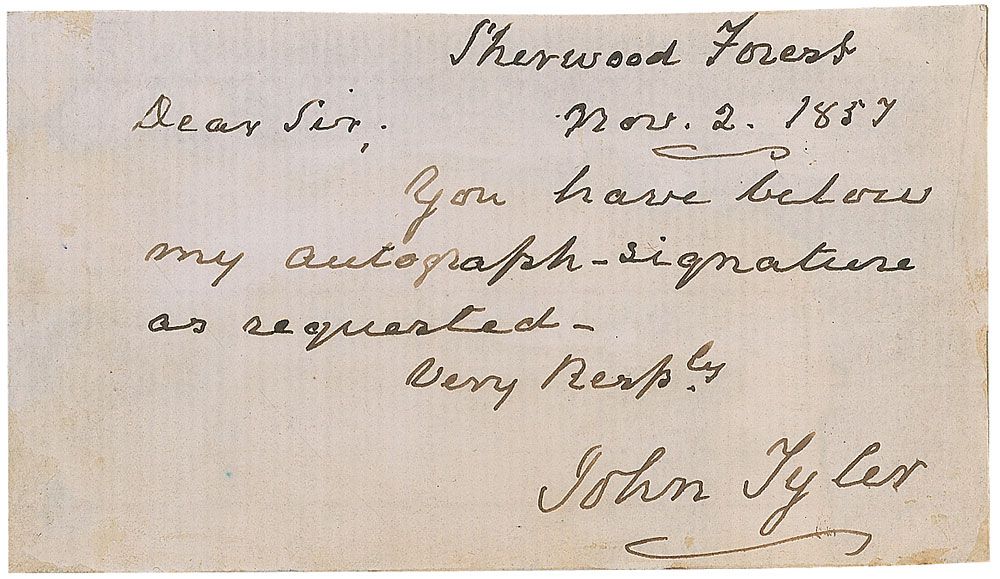 Sherwood Forest
Dear Sir, Nov. 2. 1857
You have below
my autograph-signature
as requested-
Very Resply
John Tyler